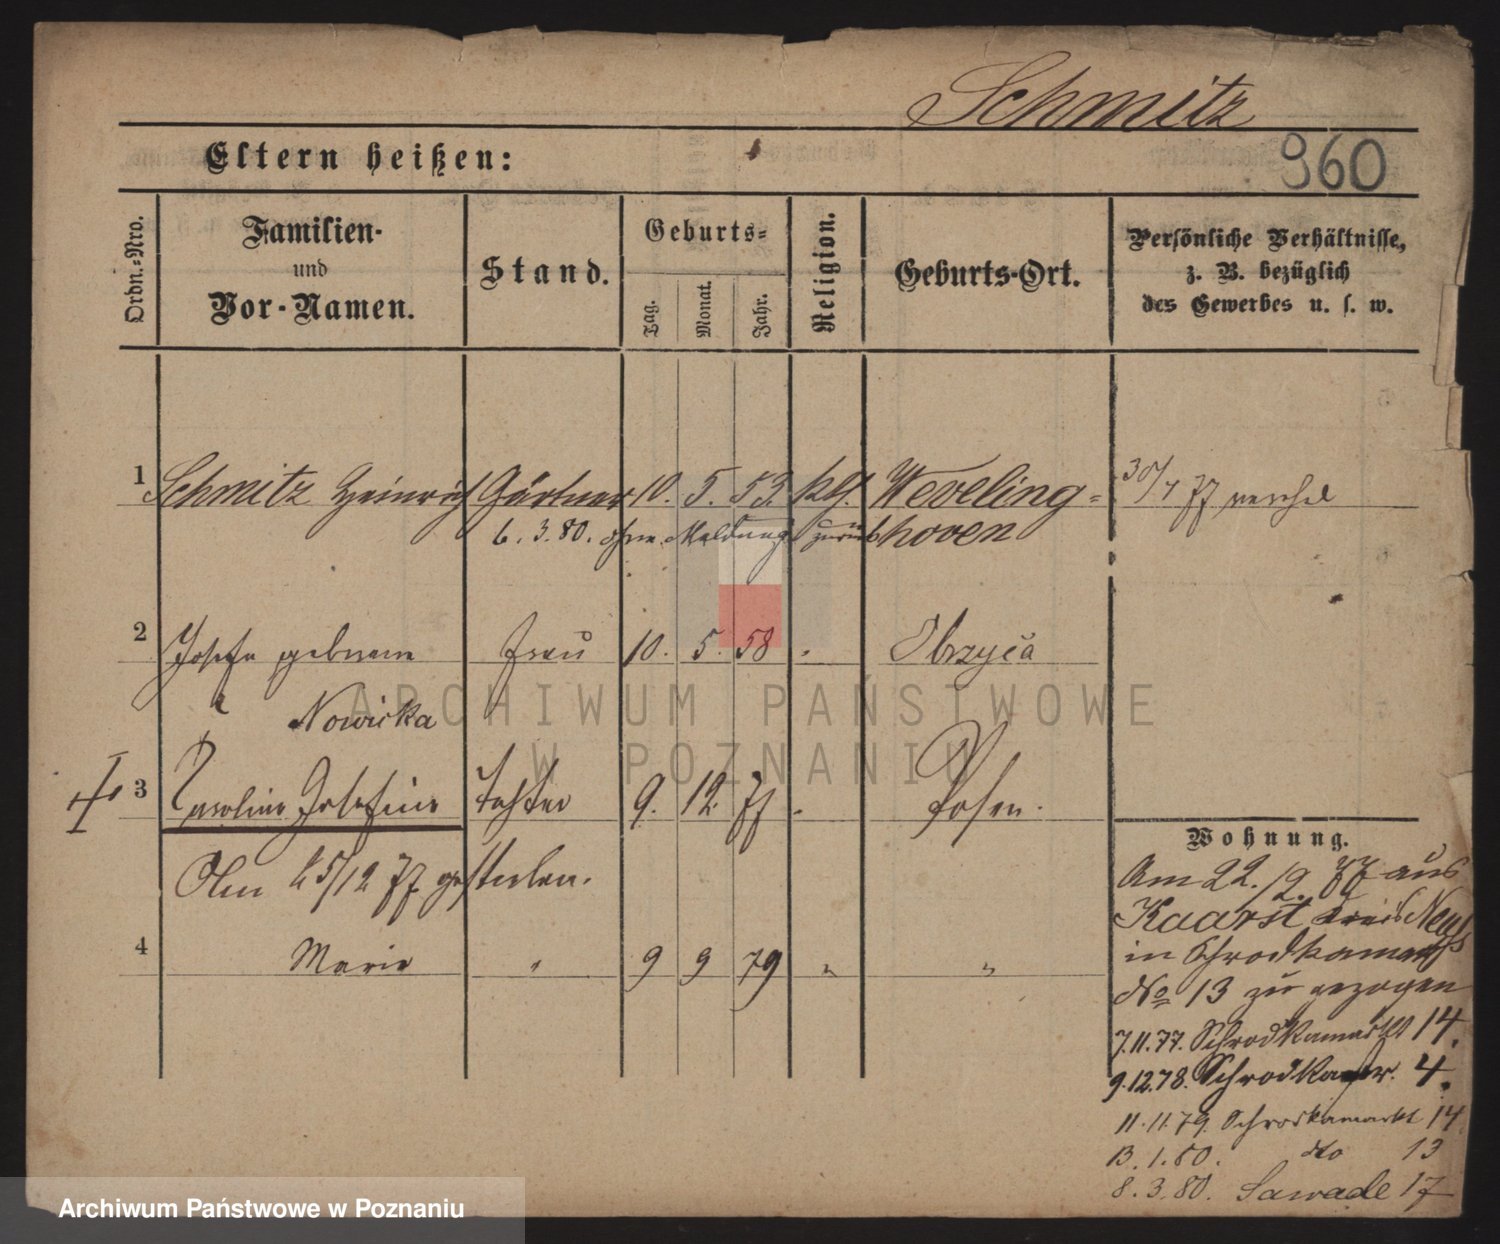 Schmitz
960
Eltern heißen:
Ordn.-Nro.
Familien-
und
Vor-Namen.
Stand.
Geburts-
Tag.
Monat.
Jahr.
Religion.
Geburts-Ort.
Persönliche Verhältnisse,
z. B. bezüglich
des Gewerbes u. s. w.
1 Schmitz Heinrich Gärtner 10. 5. 53. kth. Weveling-
hoven
30/7 77
6. 3. 80. ohne Meldung zurück
2 Josefa geborene Frau 10. 5. 58 Obrzyca
Nowicka
3 Caroline Josefine Tochter 9. 12. 77 Posen.
25/12 77 gestorben.
4 Marie " 9 9 79 " "
Wohnung.
Am 22./2. 77 aus
Kaarst Kreis Neuß
in Schrodkamarkt
No 13 zu gezogen
7.11.77. Schrodkamarkt 14.
9.12.78. Schrodkamr. 4.
11.11.79. Schrodkamarkt 14
13.1.80. dto 13
8.3.80. Sawade 17
ARCHIWUM PAŃSTWOWE
W POZNANIU
Archiwum Państwowe w Poznaniu